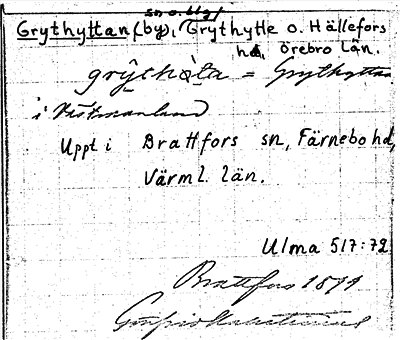 sn o. bg
Grythyttan (by), Grythytte o. Hällefors
hd, Örebro län.
grychòta = Grythyttan
i Västmanland
Uppt i Brattfors sn, Färnebo hd,
Värml. län.
Ulma 517:72
Brattfors 1879